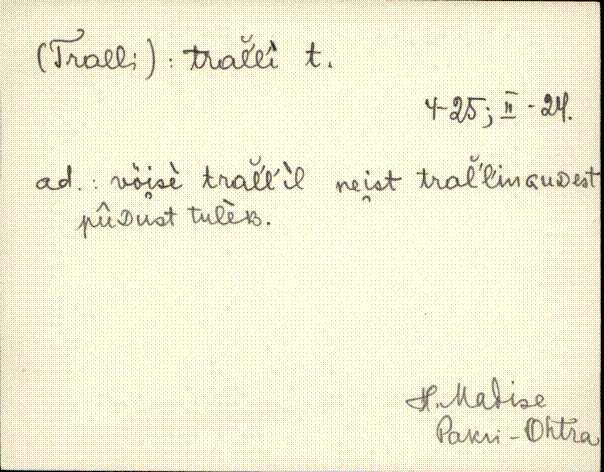 (Tralli) : tral̆lì t.
4-25; II - 24.
ad. : või̯sè tral̆'l'ìl nei̯st tral̆'l'inGuDest
pûDust tulèB.
H. Matise
Pakri - Ohtra